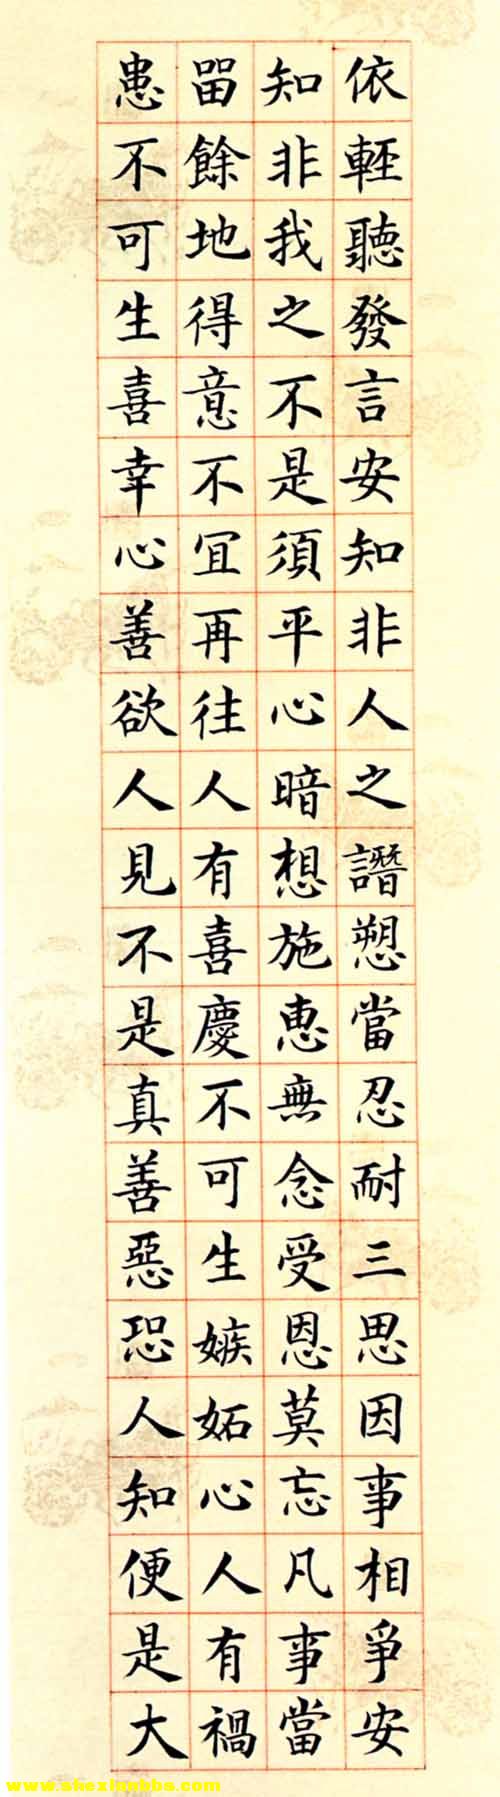 依輕聽發言安知非人之譖愬當忍耐三思因事相爭安
知非我之不是須平心暗想施惠無念受恩莫忘凡事當
畱餘地得意不宜再往人有喜慶不可生嫉妬心人有禍
患不可生喜幸心善欲人見不是真善惡恐人知便是大
www.shexianbbs.com